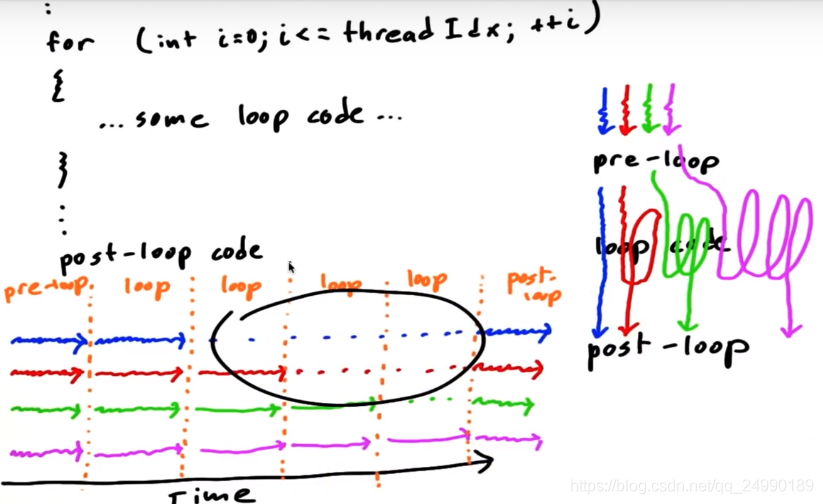 :
for (int i=0; i<= threadIdx; ++i)
{
... some loop code ...
}
:
post-loop code
pre-loop loop loop loop loop post-loop
Time
pre-loop
loop code
post-loop
https://blog.csdn.net/qq_24990189